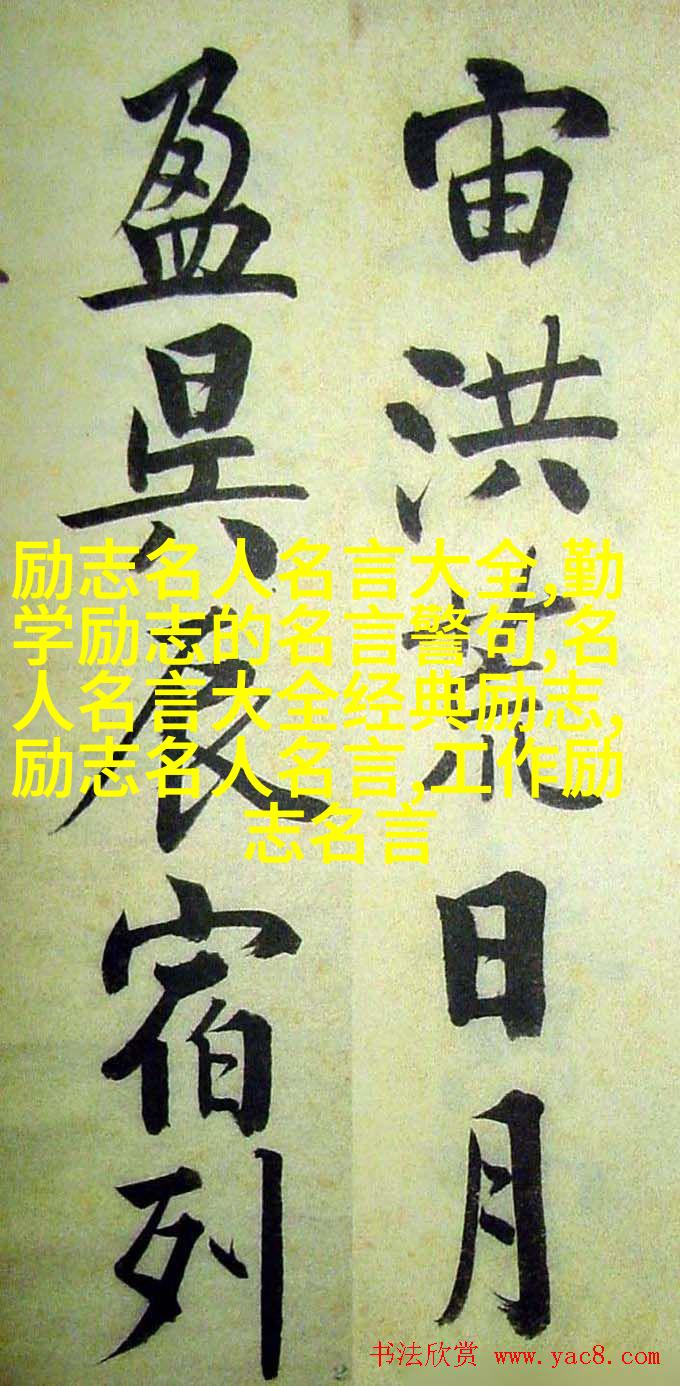 宙洪荒日月
盈昃辰宿列
励志名人名言大全,勤
学励志的名言警句,名
人名言大全经典励志,
励志名人名言,工作励
志名言
书法欣赏 www.yac8.com